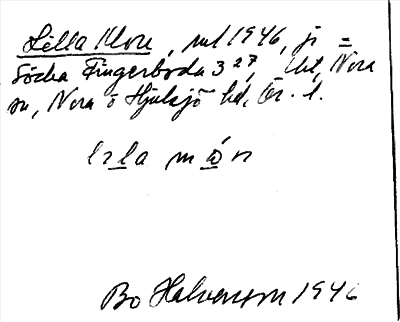 Lilla Mon, ml 1946, ji =
Södra Fingerboda 3²⁷, Nora
sn, Nora o Hjulsjö hd, Ör. l.
lila món
Bo Halvarsson 1946